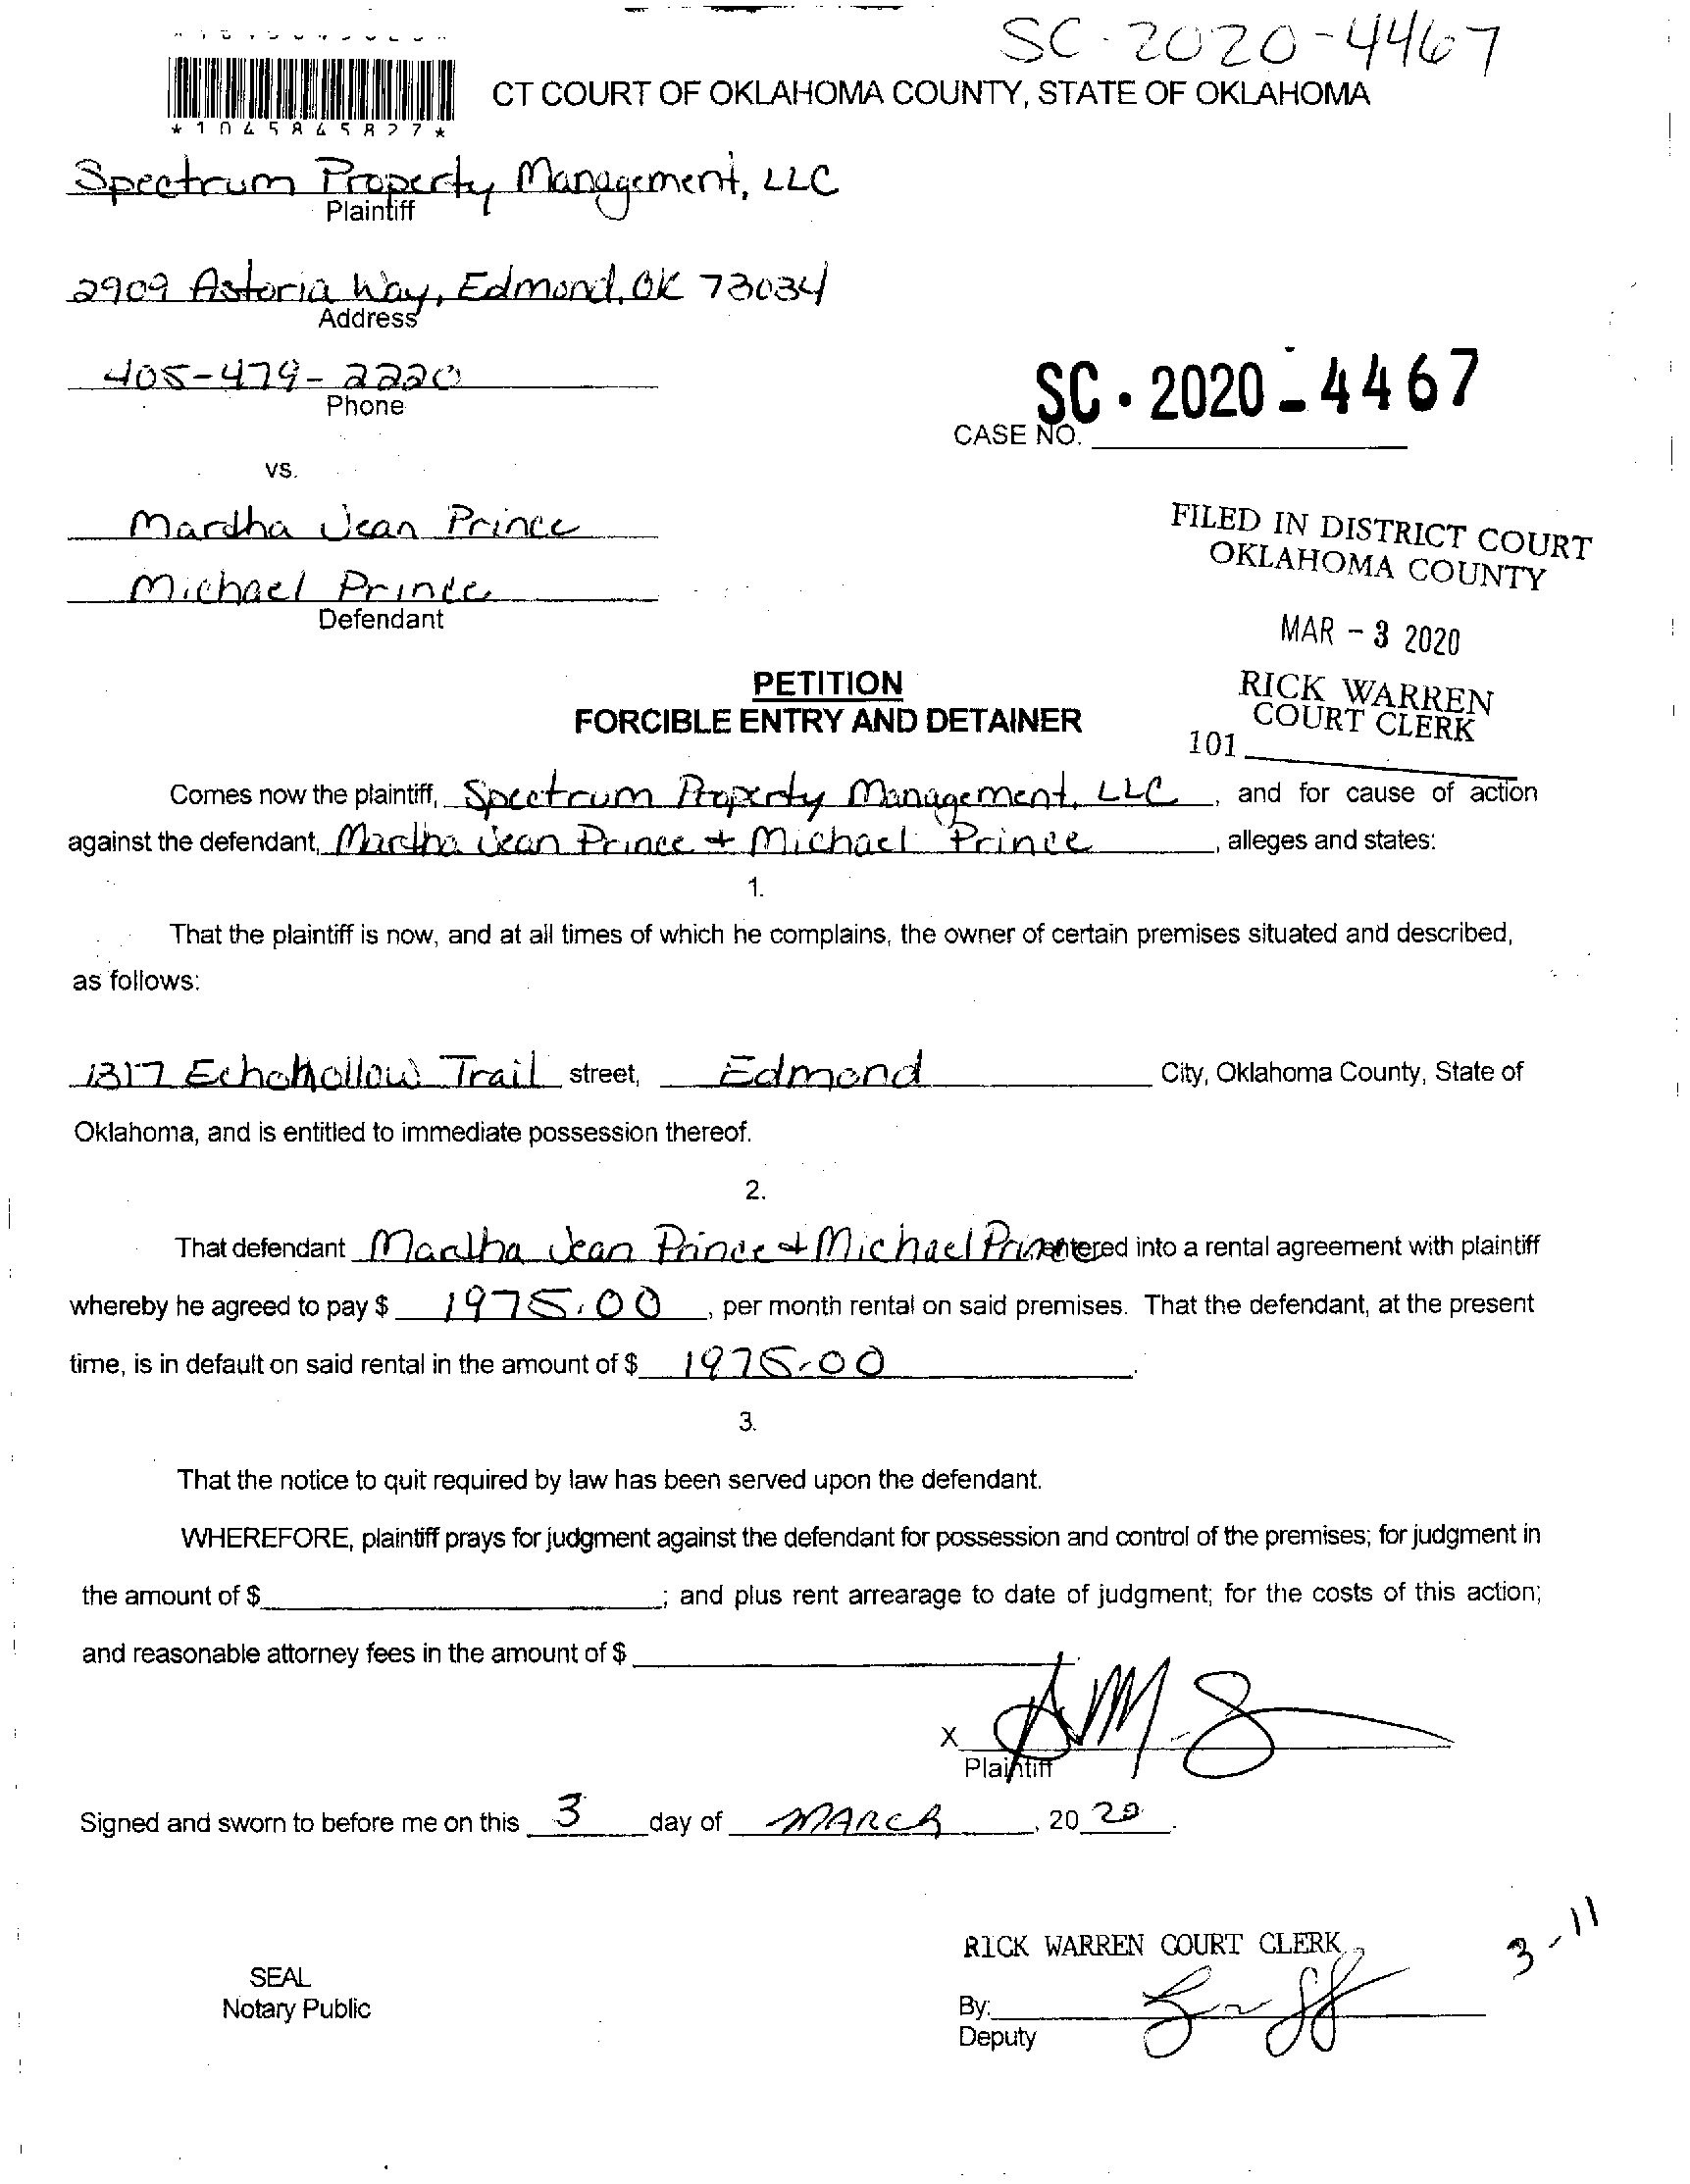 SC-2020-4467
CT COURT OF OKLAHOMA COUNTY, STATE OF OKLAHOMA
*1045845827*
Spectrum Property Management, LLC
Plaintiff
2909 Astoria Way, Edmond, OK 73034
Address
405-479-2220
Phone
SC-2020-4467
CASE NO.
vs.
Martha Jean Prince
Michael Prince
Defendant
FILED IN DISTRICT COURT
OKLAHOMA COUNTY
MAR - 3 2020
RICK WARREN
COURT CLERK
101
PETITION
FORCIBLE ENTRY AND DETAINER
Comes now the plaintiff, Spectrum Property Management, LLC, and for cause of action
against the defendant, Martha Jean Prince + Michael Prince, alleges and states:
1.
That the plaintiff is now, and at all times of which he complains, the owner of certain premises situated and described,
as follows:
1317 Echohollow Trail street, Edmond City, Oklahoma County, State of
Oklahoma, and is entitled to immediate possession thereof.
2.
That defendant Martha Jean Prince + Michael Prince entered into a rental agreement with plaintiff
whereby he agreed to pay $ 1975.00, per month rental on said premises. That the defendant, at the present
time, is in default on said rental in the amount of $ 1975.00.
3.
That the notice to quit required by law has been served upon the defendant.
WHEREFORE, plaintiff prays for judgment against the defendant for possession and control of the premises; for judgment in
the amount of $ ; and plus rent arrearage to date of judgment; for the costs of this action;
and reasonable attorney fees in the amount of $
X
Plaintiff
Signed and sworn to before me on this 3 day of MARCH, 20 20.
3-11
RICK WARREN COURT CLERK
SEAL
Notary Public
By:
Deputy